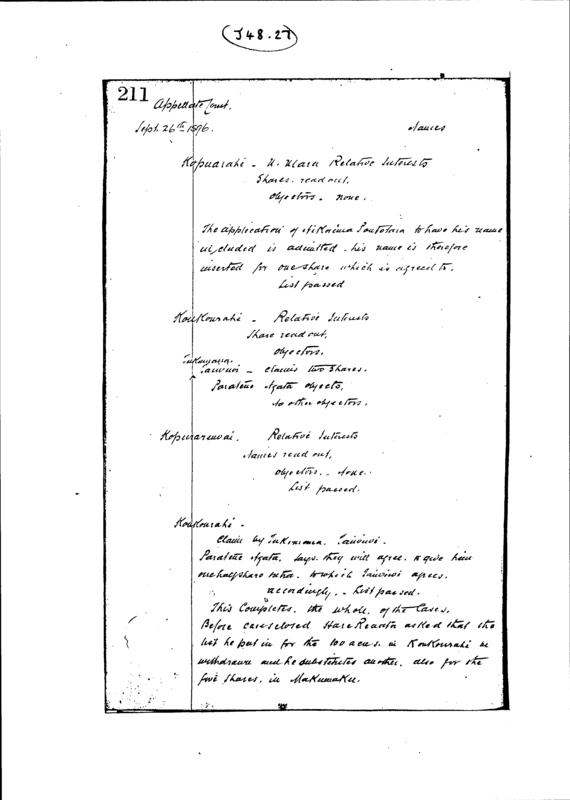 J48.27
211
Appellate Court.
Sept. 26th 1896.
Names
Kopuarahi - Relative Interests
Shares. read out.
Objectors. none.
The application of to have his name
included is admitted. his name is therefore
inserted for one share which is agreed to.
List passed
Koukourahi - Relative Interests
Share read out,
Objectors.
- claims two Shares.
Paratene Ngata objects,
No other objectors.
Relative Interests
Names read out,
Objectors. - None.
List passed.
Koukourahi -
Claim by
Paratene Ngata. says. they will agree. to give him
one half share extra. to which agrees.
accordingly. - List passed.
This Completes. the whole. of the Cases.
Before case closed Hare asked that the
list he put in for the 100 acres. in Koukourahi be
withdrawn and he substitutes another. also for the
five shares. in